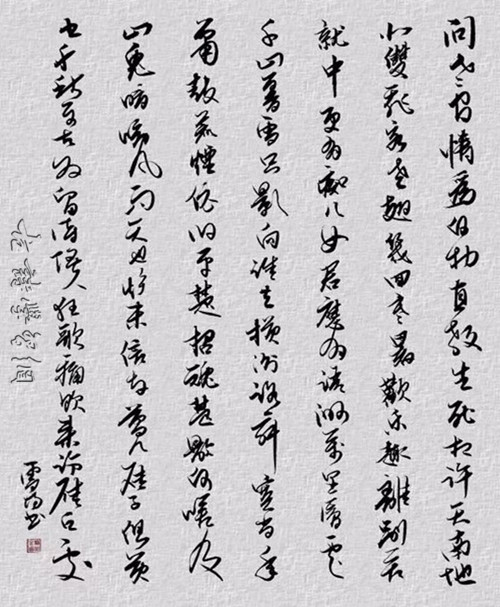 问世间情為何物直教生死相许天南地
北雙飛客老翅幾回寒暑歡乐趣離別苦
就中更有癡儿女君應有语渺萬里層雲
千山暮雪只影向谁去橫汾路寂寞当年
萧鼓荒煙依旧平楚招魂楚些何嗟及
山鬼暗啼风雨天也妒未信与莺儿燕子俱黄
土千秋万古為留待骚人狂歌痛饮来访雁丘处